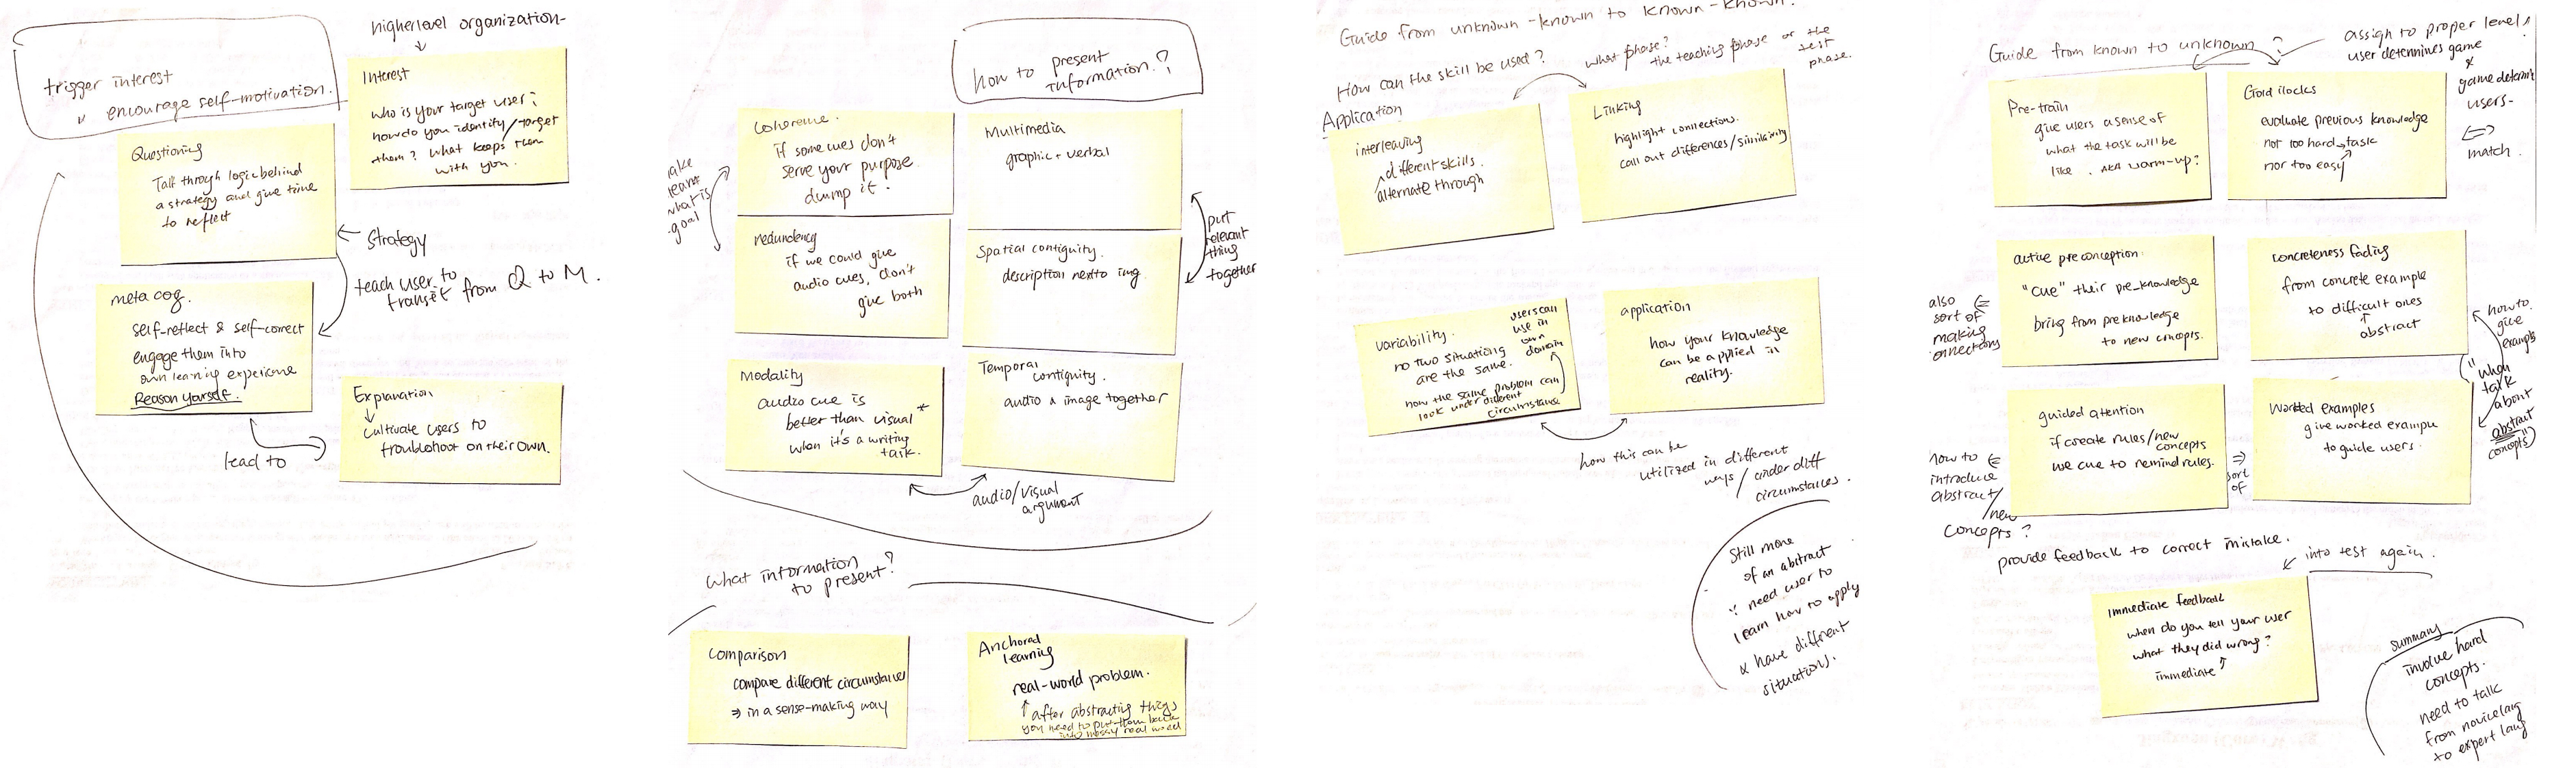 higherlevel organization-
trigger interest
encourage self-motivation.
Interest
who is your target user;
how do you identify/target
them? What keeps them
with you.
Questioning
Talk through logic behind
a strategy and give time
to reflect
strategy
teach user to
transit from Q to M.
meta cog.
self-reflect & self-correct
engage them into
own learning experience
Reason yourself.
lead to
Explanation
cultivate users to
troubleshoot on their own.
how to present
information?
Coherence.
if some cues don't
serve your purpose
dump it.
Multimedia
graphic + verbal
what is
goal
redundency
if we could give
audio cues, don't
give both
Spatial contiguity.
description next to img
put
relevant
thing
together
Modality
audio cue is
better than visual *
when it's a writing
task.
Temporal
contiguity.
audio & image together
audio/visual
argument
What information
to present?
Comparison
compare different circumstances
⇒ in a sense-making way
Anchored
learning
real-world problem.
↑ after abstracting things
you need to put them back
into messy real world
Guide from unknown-known to known-known.
How can the skill be used?
what phase?
the teaching phase or the
test
phase.
Application
interleaving
different skills.
alternate through
Linking
highlight connections.
call out differences/similarity
variability.
no two situations
are the same.
users can
use in
own
domain
how the same problem can
look under different
circumstance
application
how your knowledge
can be applied in
reality.
how this can be
utilized in different
ways / under diff
circumstances.
Still more
of an abstract
∵ need user to
learn how to apply
& have different
situations.
Guide from known to unknown ?
assign to proper level;
user determines game
&
game determin
users-
match.
Pre-train
give users a sense of
what the task will be
like. AKA warm-up?
Goldilocks
evaluate previous knowledge
not too hard → task
nor too easy
active preconception.
"cue" their pre-knowledge
bring from preknowledge
to new concepts.
also
sort of
making
connections
concreteness fading
from concrete example
to difficult ones
↑
abstract
how to
give
example
"when
talk
about
abstract
concepts"
guided attention
if create rules/new
concepts
we cue to remind rules.
how to
introduce
abstract/
new
concepts?
sort
of
Worked examples
give worked example
to guide users.
provide feedback to correct mistake.
into test again.
Immediate feedback
when do you tell your user
what they did wrong?
immediate
summary
involve hard
concepts.
need to talk
from novice lang
to expert lang